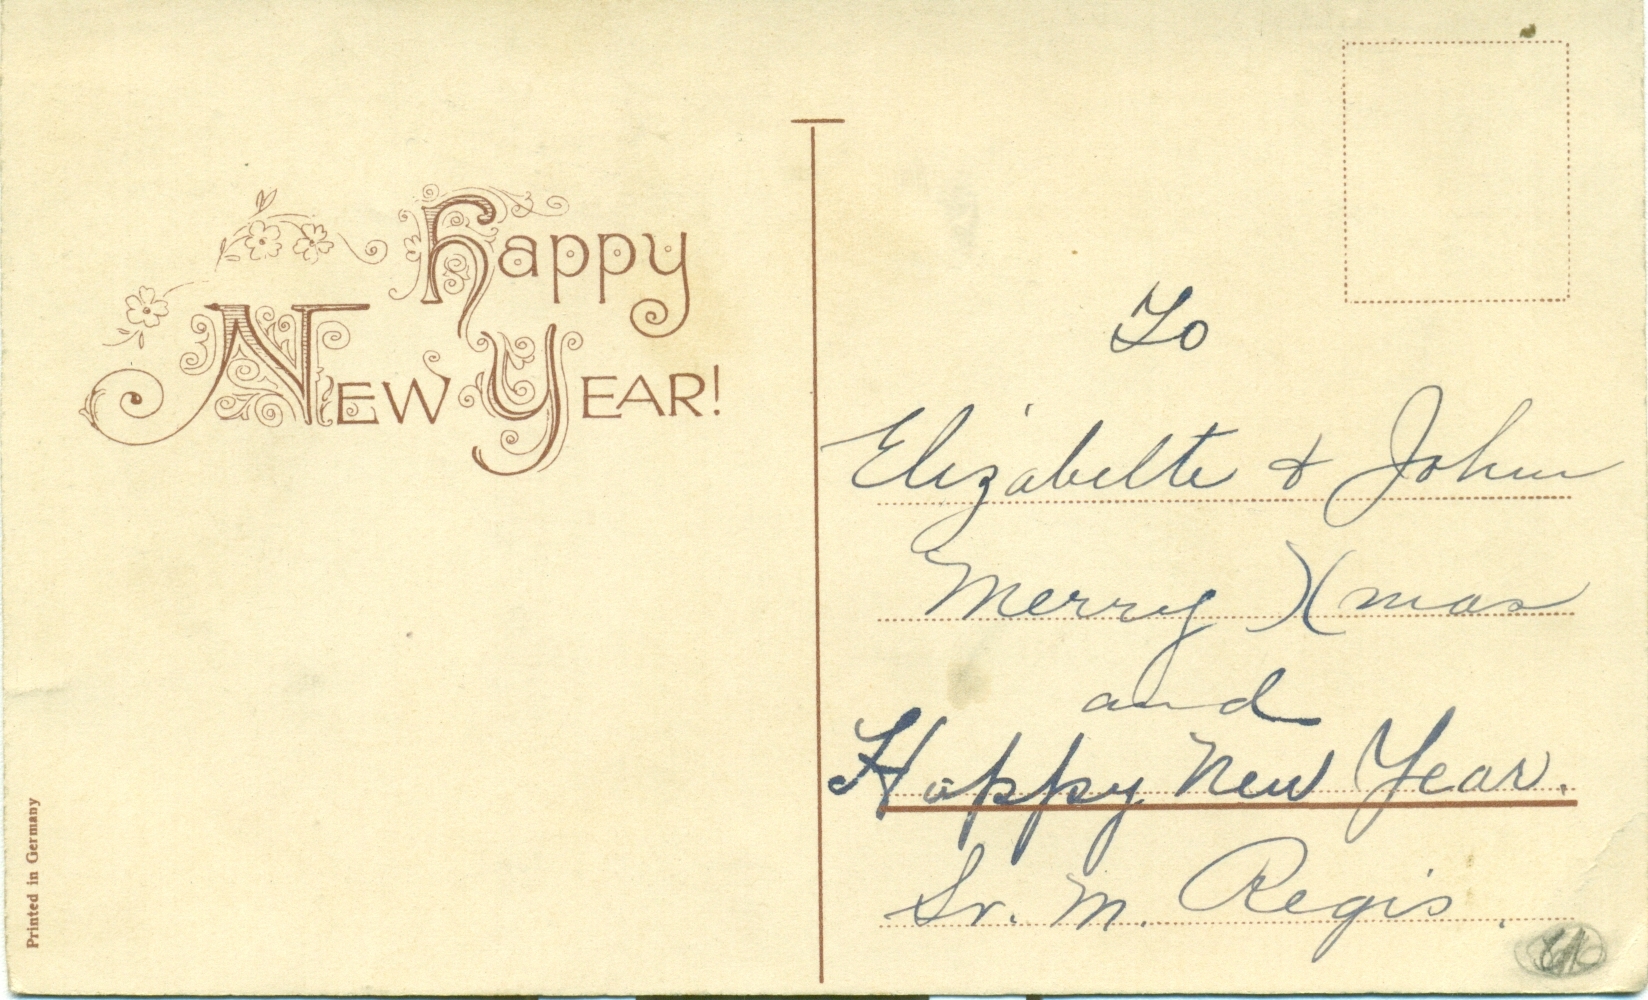 Happy
NEW YEAR!
Printed in Germany
To
Elizabette & John
Merry Xmas
and
Happy New Year.
Sr. M. Regis.